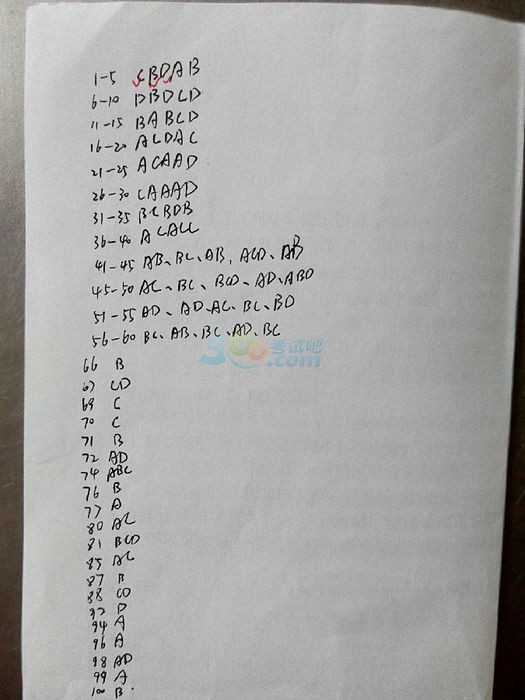 1-5 CBDAB
6-10 DBDCD
11-15 BABCD
16-20 ACDAC
21-25 ACAAD
26-30 CAAAD
31-35 BCBDB
36-40 ACACC
41-45 AB、BC、AB, ACD、AB
45-50 AC、BC、BCD、AD、ABD
51-55 AD、AD、AC、BC、BD
56-60 BC、AB、BC、AD、BC
考试吧
66 B
67 CD
69 C
70 C
71 B
72 AD
74 ABC
76 B
77 A
80 AC
81 BCD
85 AC
87 B
88 CD
D
94 A
96 A
98 AD
99 A
100 B.